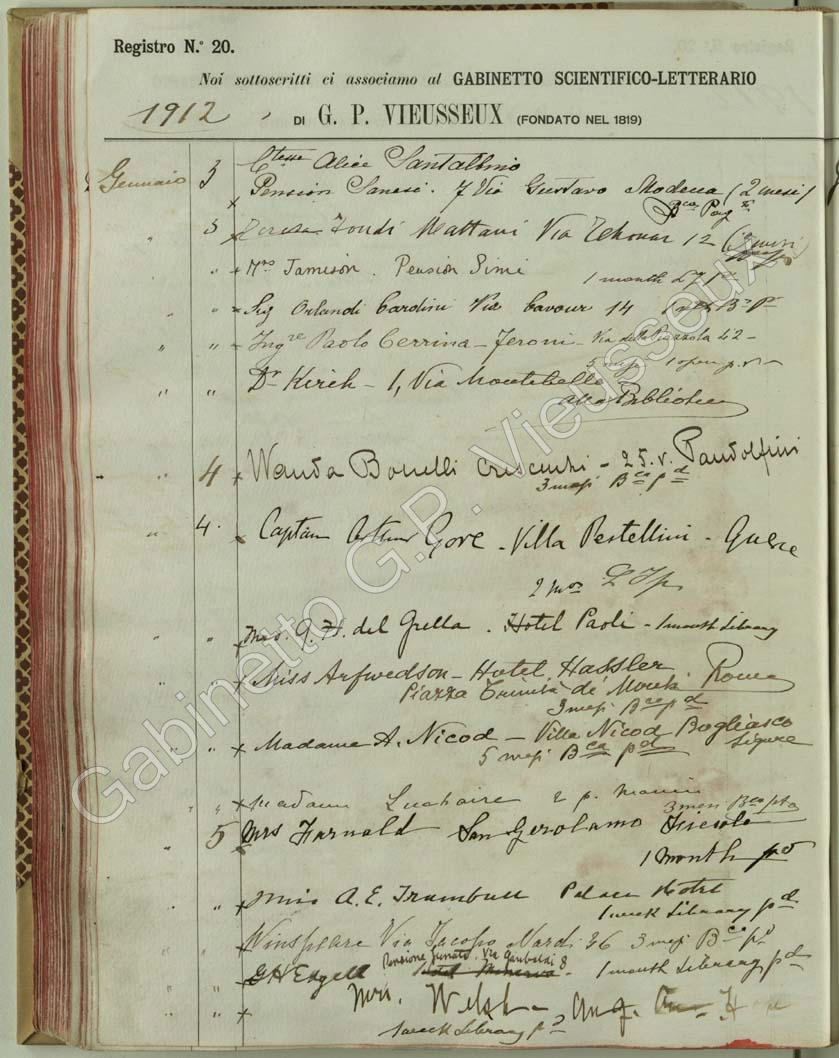 Registro N.° 20.
Noi sottoscritti ci associamo al GABINETTO SCIENTIFICO-LETTERARIO
1912 DI G. P. VIEUSSEUX (FONDATO NEL 1819)
Gennaio 3 Ctesse Alice Santalbino
Pension Sanesi. 7 Via Gustavo Modena (2 mesi)
3 Fondi Mattani Via 12
" " Mrs Jamison. Pension Simi
1 month
" " Sig Orlandi Cardini Via Cavour 14
" " Ingre Paolo Cerrina-Feroni - Via della Piazzola 42 -
" " Dr Kirch - 1, Via Montebello
alla Biblioteca
" 4 Wanda Bonelli Crescenzi - 25. v. Pandolfini
3 mesi Bca pd
" 4. Captain Arthur Gore - Villa Pestellini -
2 mos
" " Mrs. G. H. del Grella. Hotel Paoli - 1 month Library
" " Miss Arfwedson - Hotel Hassler
Piazza Trinità de' Monti. Roma
3 mesi Bca pd
" " Madame A. Nicod - Villa Nicod Bogliasco
5 mesi Bca pd Ligure
" " Madame Luchaire 2 p. Manin
3 mesi Bca
" 5 Mrs Farnald San Gerolamo Fiesole
1 month pd
" " Miss A. E. Trumbull Palace Hotel
1 week Library pd
" Winspeare Via Jacopo Nardi 36 3 mesi Bca pd
" " G H Edgell Pensione Via Garibaldi 8
Hotel Minerva - 1 month Library pd
" " Mrs. Welsh
1 week Library pd
Gabinetto G.P. Vieusseux